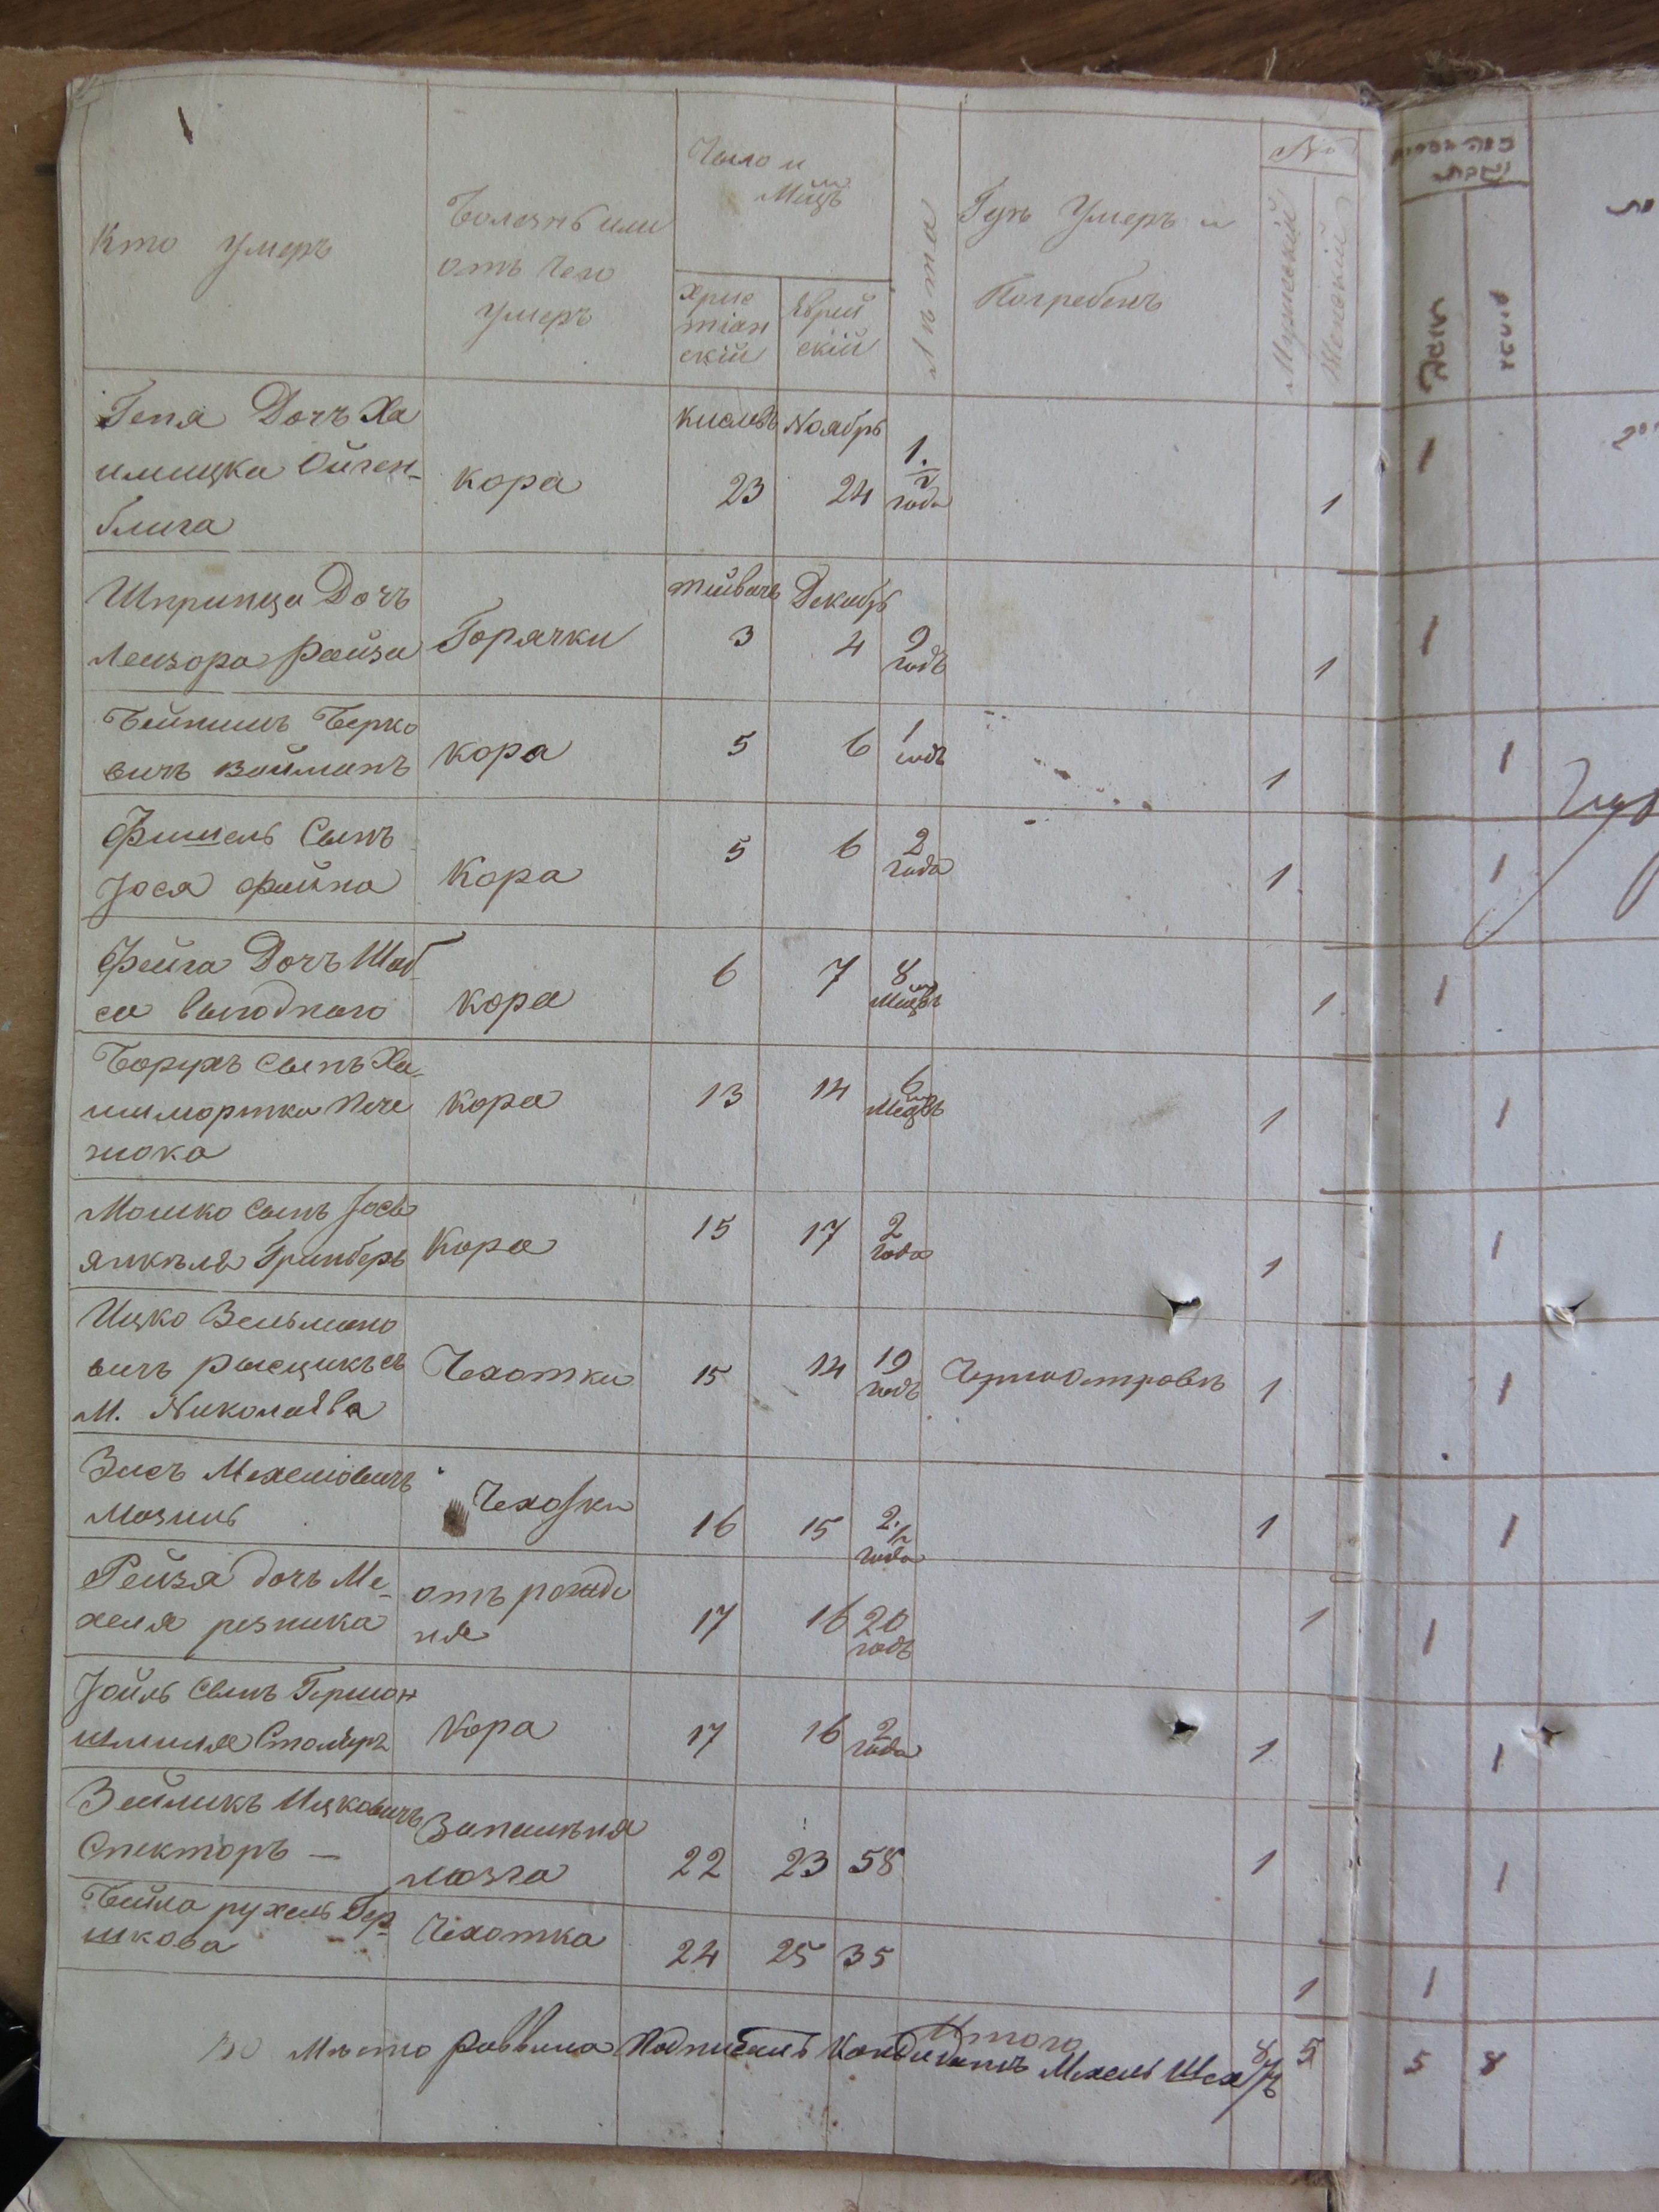 Кто умеръ
Болезнь или
отъ чего
умеръ
Число и
Мцъ
Хрис
тіан
скій
Яврей
скій
Лѣта
Гдѣ Умеръ и
Погребенъ
№
Мужескій
Женскій
Гепя Дочъ Ха
имицка Ойген-
блига
кора
Кислевъ Ноябрь
23 24 1.½
года
1
Шпринца Дочъ
Лейзора Райза
Горячки
Тейватъ Декабрь
3 4 9
годъ
1
Бейнишъ Берко
вичъ Войманъ
кора
5 6 1
годъ
1
Фишель Сынъ
Іося Файна
Кора
5 6 2
года
1
Фейга Дочъ Шаб-
са Выгоднаго
кора
6 7 8
Мцвъ
1
Борухъ Сынъ Ха-
иммортка Пече
нюка
Кора
13 14 6
Мецвъ
1
Мошко Сынъ Іось
Янкѣля Гринберъ
Кора
15 17 2
года
1
Ицко Зельмано
вичъ
М. Николаѣва
Чехотки
15 14 19
годъ
Черноостровѣ
1
Зись Мехелювичъ
Мозиль
Чехотки
16 15 2.½
года
1
Рейзя дочъ Ме-
хеля резника
отъ рожде
ния
17 16 20
годъ
1
Іойль Сынъ Гершон
шмиля Столяръ
Кора
17 16 2
года
1
Зейликъ Ицковичъ
Спекторъ —
Запаленія
мозга
22 23 58
1
Бейла рухель Гер-
шкова
Чехотка
24 25 35
1
Итого
8 5
Мѣсто Раввина Подписалъ Кандидатъ Мехель
1
1
1
1
1
1
1
1
1
1
1
1
1
5 8